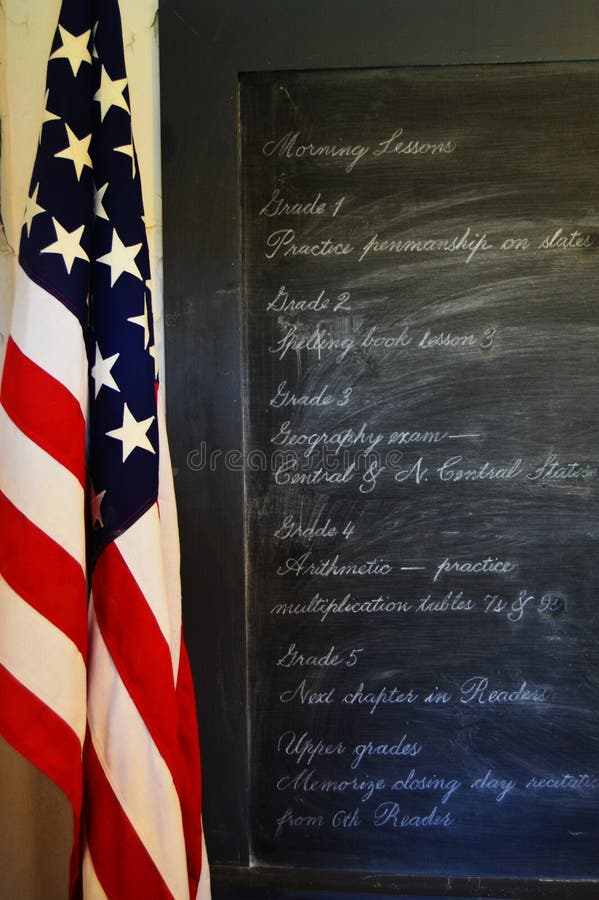 Morning Lessons
Grade 1
Practice penmanship on slates
Grade 2
Spelling book lesson 3
Grade 3
Geography exam —
Central & N. Central States
Grade 4
Arithmetic — practice
multiplication tables 7s & 9s
Grade 5
Next chapter in Readers
Upper grades
Memorize closing day recitatio
from 6th Reader
dreamstime